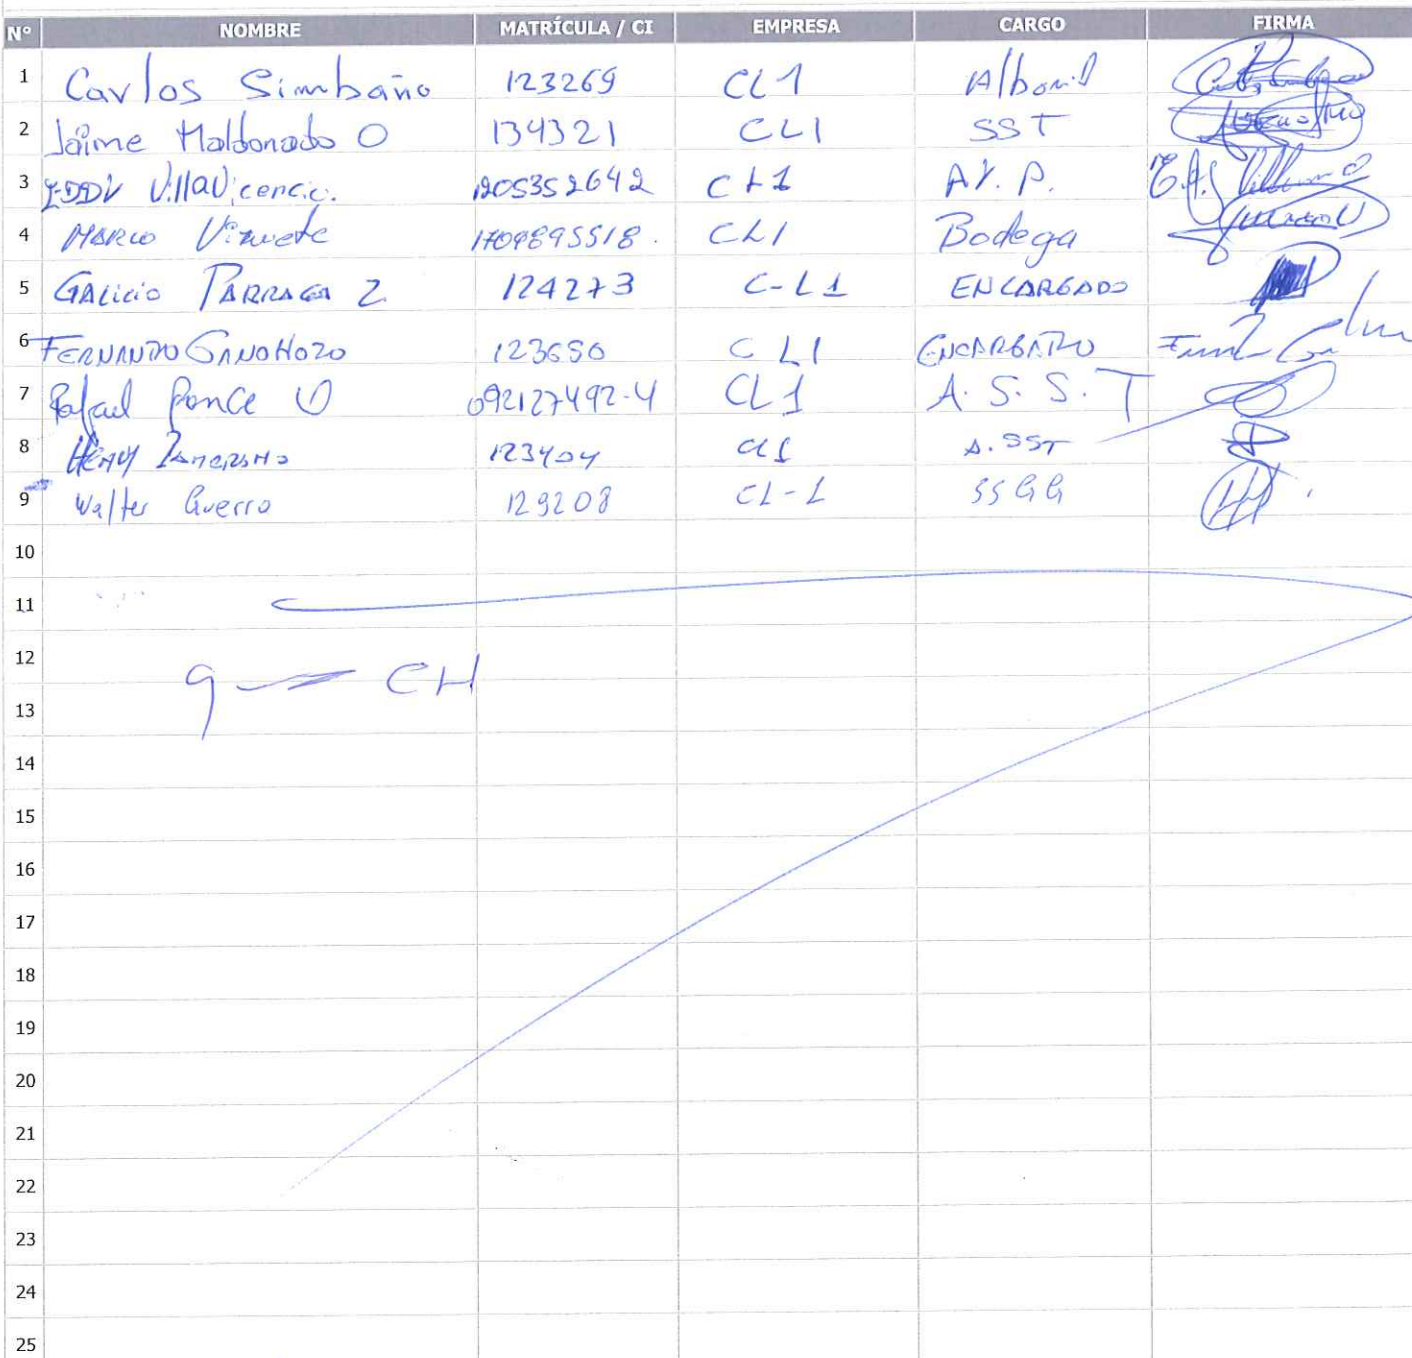 N° NOMBRE MATRÍCULA / CI EMPRESA CARGO FIRMA
1 Carlos Simbaño 123269 CL1 Albañil
2 Jaime Maldonado O 134321 CL1 SST
3 EDDY VillaVicencio. 1205352642 CL1 AY. P.
4 MARCO 1709895518. CL1 Bodega
5 GALICIO PARRAGA Z 124273 C-L1 ENCARGADO
6 FERNANDO 123650 CL1 ENCARGADO
7 Rafael Ponce V 092127492-4 CL1 A. S. S. T
8 HENRY ZAMBRANO 123404 CL1 A. SST
9 Walter Guerro 129208 CL-1 SSGG
10
11
12
9 CH
13
14
15
16
17
18
19
20
21
22
23
24
25